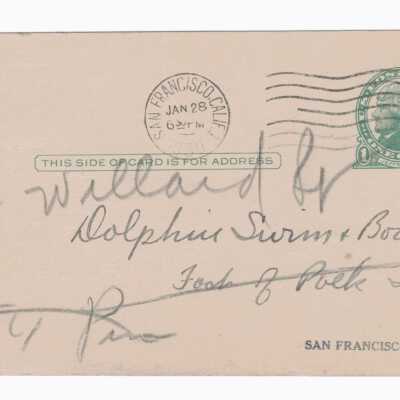 SAN FRANCISCO, CALIF.
JAN 28
6 PM
1
THIS SIDE OF CARD IS FOR ADDRESS
Willard
Dolphin Swim + Boa
Foot of Polk
SAN FRANCISC